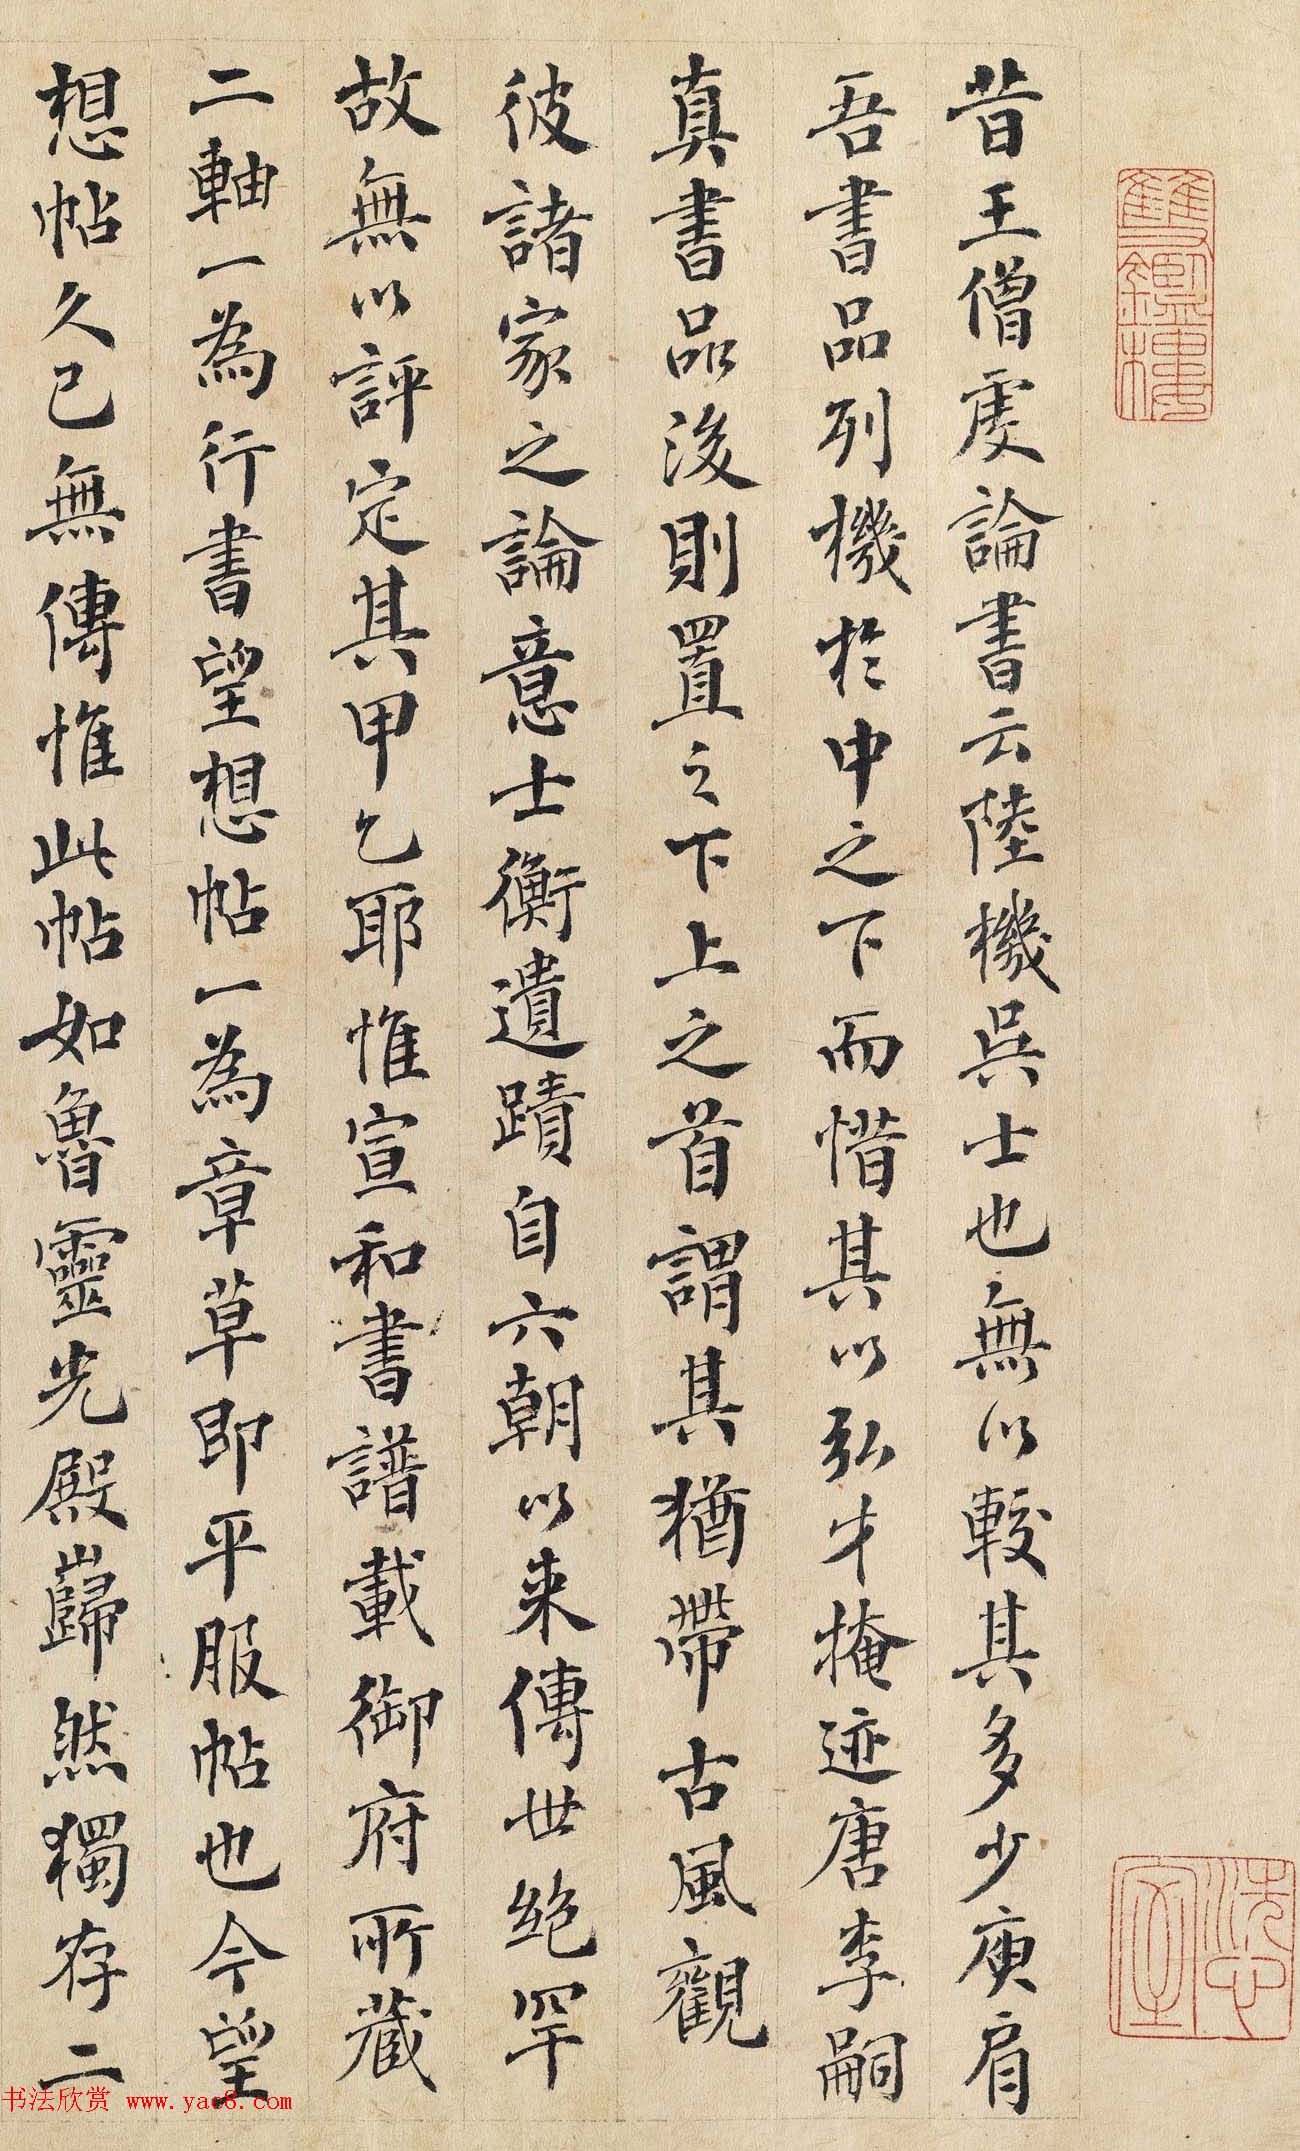 昔王僧虔論書云陸機吳士也無以較其多少庾肩
吾書品列機於中之下而惜其以弘才掩迹唐李嗣
真書品後則置之下上之首謂其猶帶古風觀
彼諸家之論意士衡遺蹟自六朝以来傳世絶罕
故無以評定其甲乙耶惟宣和書譜載御府所藏
二軸一為行書望想帖一為章草即平服帖也今望
想帖久已無傳惟此帖如魯靈光殿巋然獨存二
書法欣赏 www.yac8.com